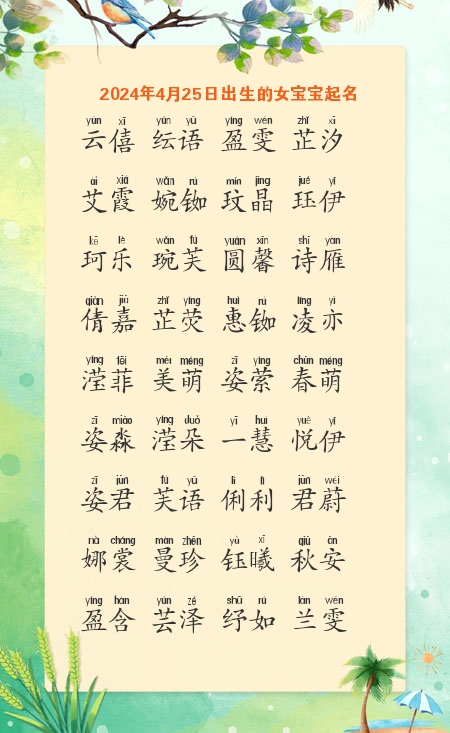 2024年4月25日出生的女宝宝起名
yún xī yún yǔ yíng wén zhǐ xī
云僖 纭语 盈雯 芷汐
ài xiá wǎn rú mín jīng jué yī
艾霞 婉铷 玟晶 珏伊
kē lè wǎn fú yuán xīn shī yàn
珂乐 琬芙 圆馨 诗雁
qiàn jiā zhǐ yíng huì rú líng yì
倩嘉 芷荧 惠铷 凌亦
yíng fēi měi méng zī yíng chūn méng
滢菲 美萌 姿萦 春萌
zī miǎo yíng duǒ yī huì yuè yī
姿淼 滢朵 一慧 悦伊
zī jūn fú yǔ lì lì jūn wèi
姿君 芙语 俐利 君蔚
nà cháng màn zhēn yù xī qiū ān
娜裳 曼珍 钰曦 秋安
yíng hán yún zé shū rú lán wén
盈含 芸泽 纾如 兰雯